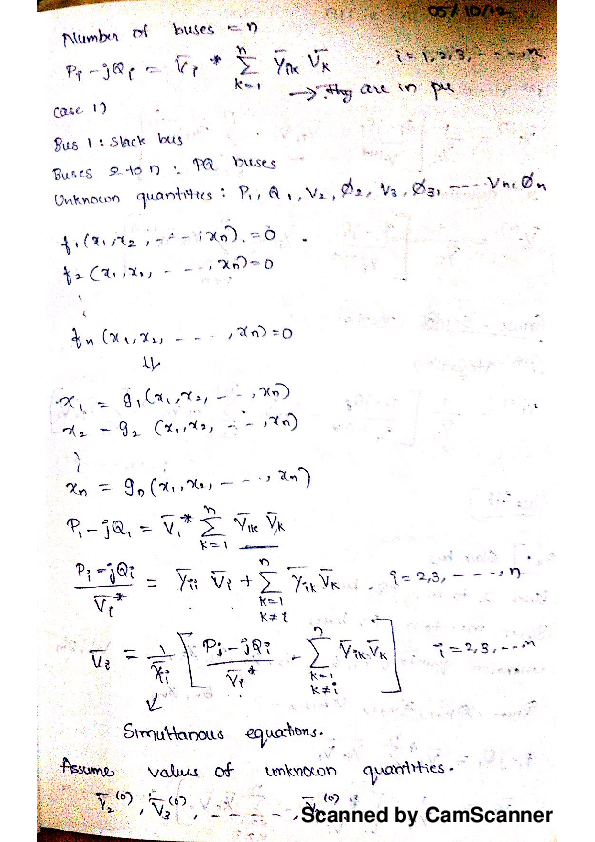 05/10/12
Number of buses = n
Pi - jQi = V̄i* Σ(k=1 to n) Ȳik V̄k , i = 1,2,3, ----, n
→ They are in pu
Case 1)
Bus 1 : slack bus
Buses 2 to n : PQ buses
Unknown quantities : P1, Q1, V2, Ø2, V3, Ø3, ---- Vn, Øn
f1(x1, x2, ---, xn) = 0
f2(x1, x2, ---, xn) = 0
fn(x1, x2, ---, xn) = 0
⇓
x1 = g1(x1, x2, ---, xn)
x2 = g2(x1, x2, ---, xn)
xn = gn(x1, x2, ---, xn)
P1 - jQ1 = V̄1* Σ(k=1 to n) Ȳ1k V̄k
(Pi - jQi)/V̄i* = Ȳii V̄i + Σ(k=1, k≠i to n) Ȳik V̄k . i = 2,3, ----, n
V̄i = 1/Ȳii [ (Pi - jQi)/V̄i* - Σ(k=1, k≠i to n) Ȳik V̄k ] . i = 2,3, --- n
Simultanous equations.
Assume values of unknown quantities.
V̄2(0), V̄3(0), - - - - -, V̄n(0)
Scanned by CamScanner